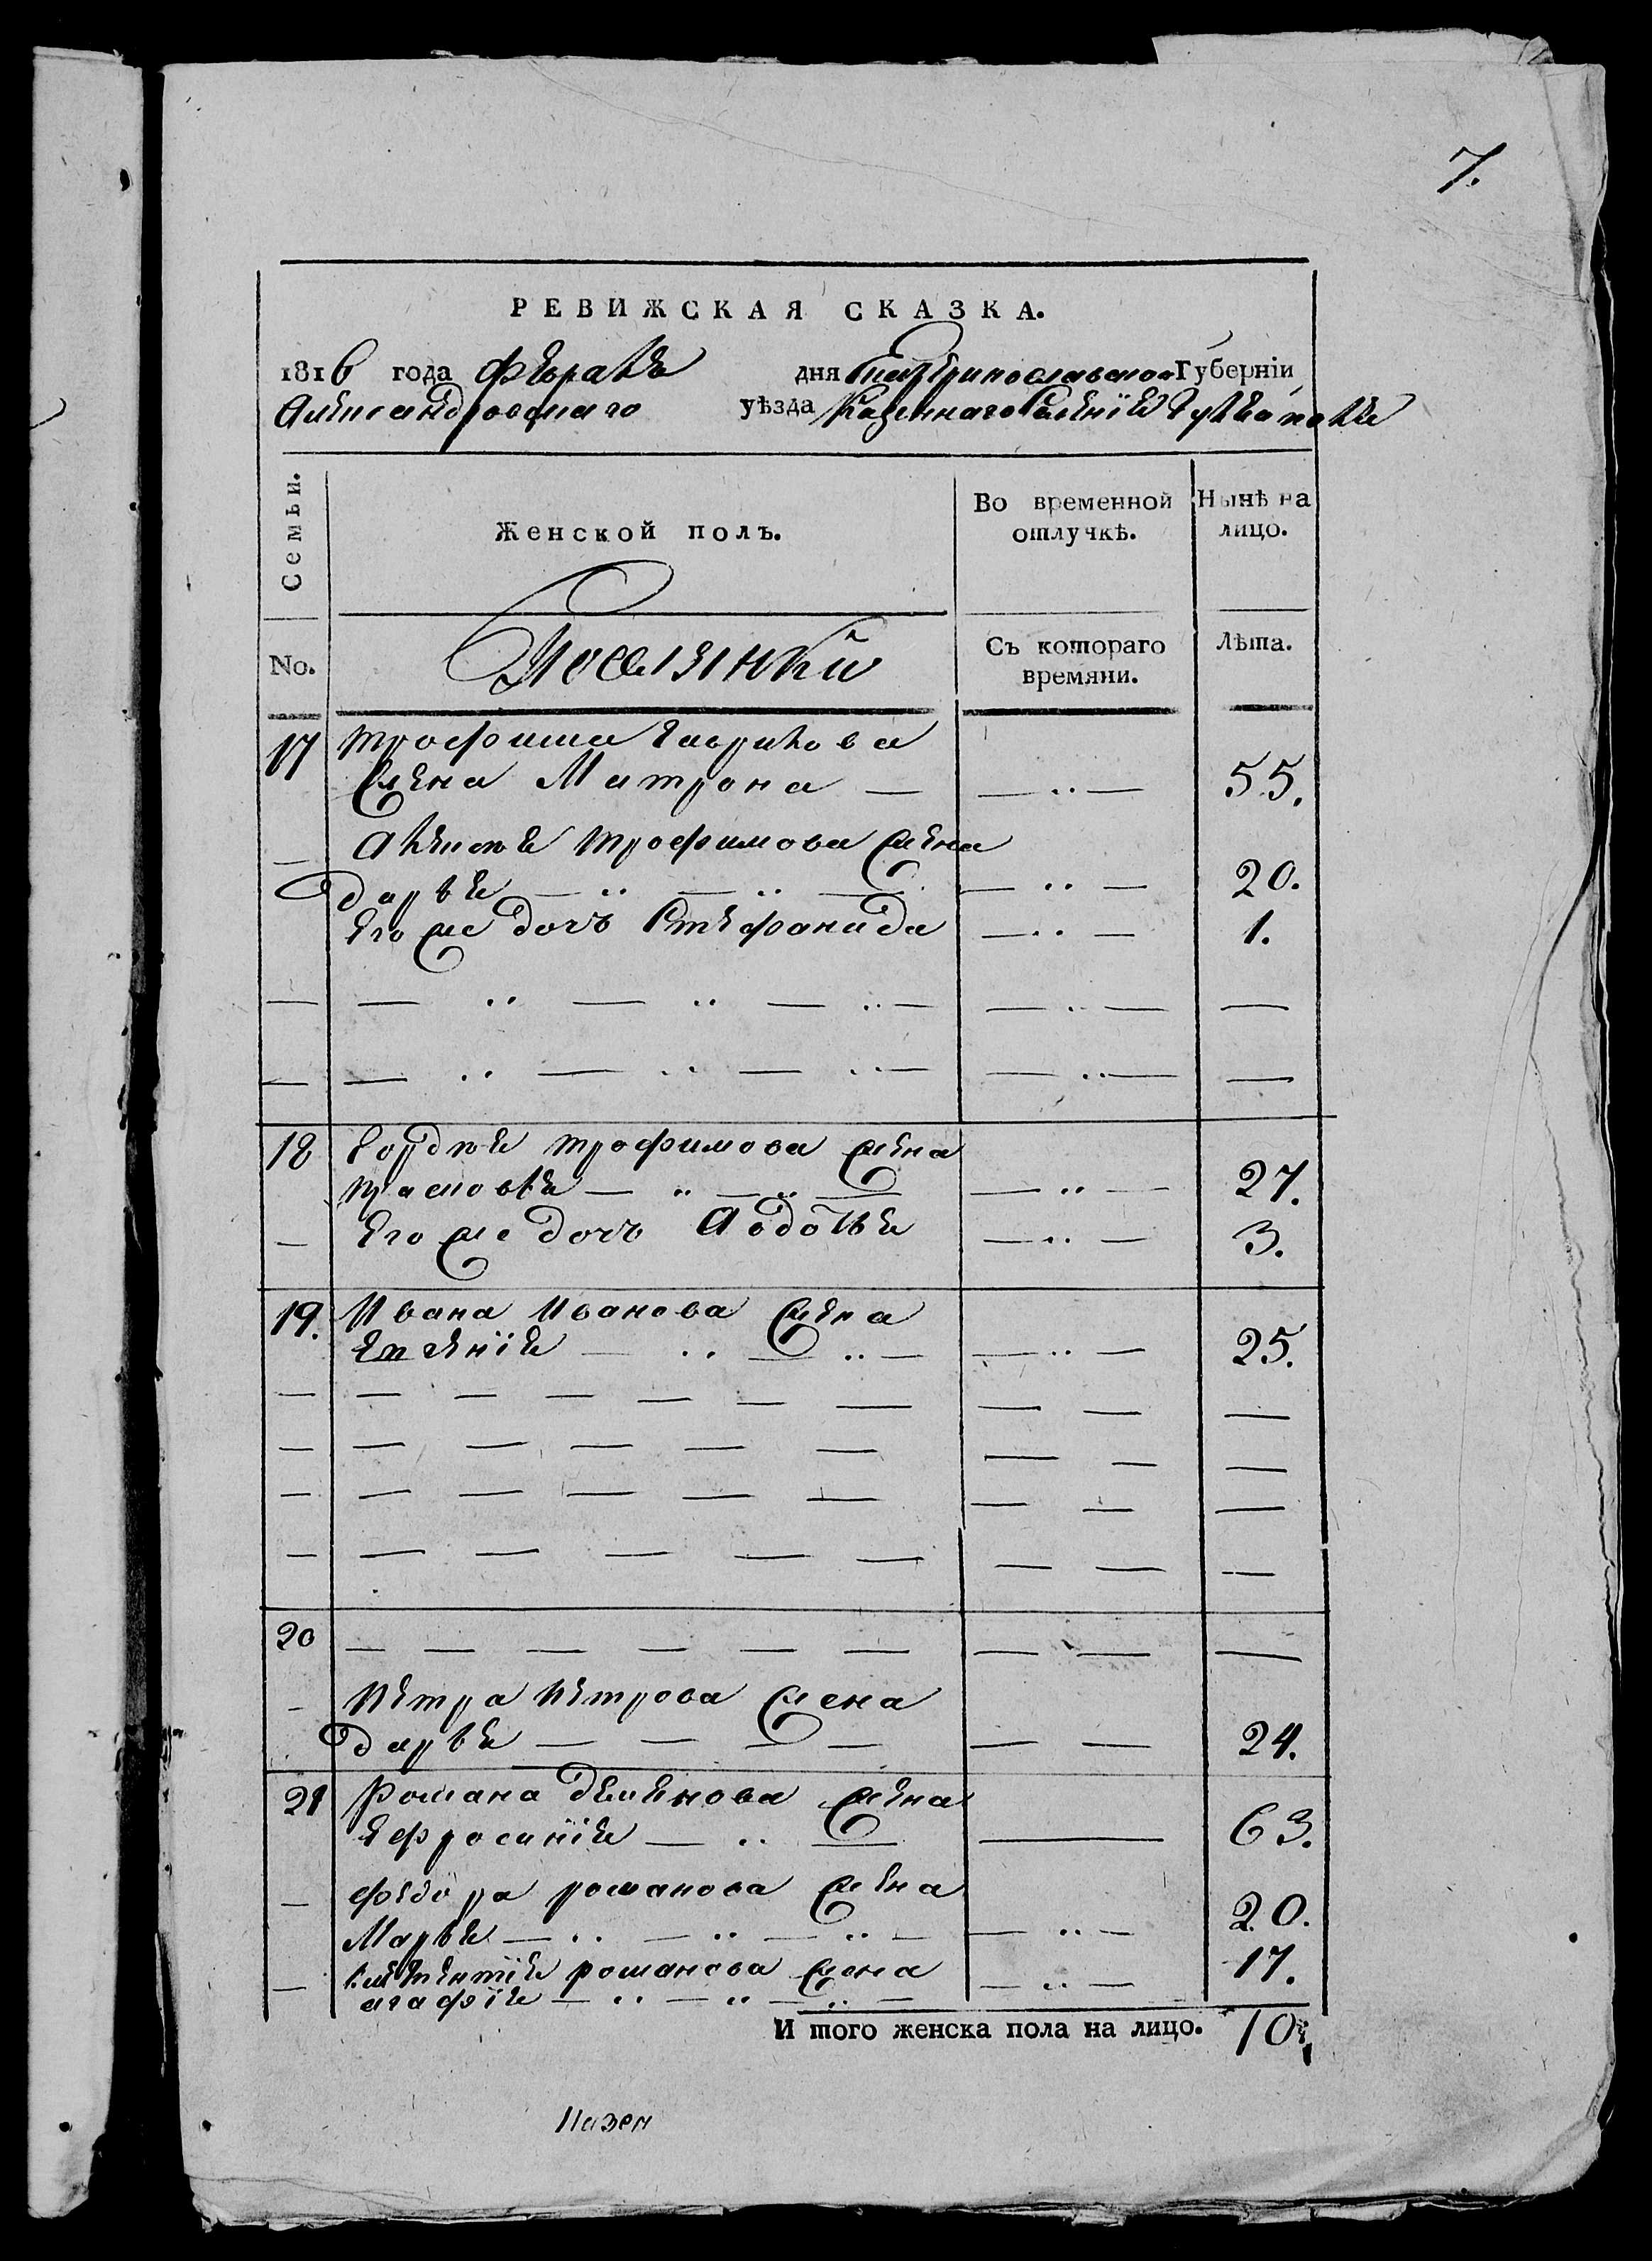 7.
РЕВИЖСКАЯ СКАЗКА.
1816 года февраля дня Екатеринославской Губерніи
Александровскаго уѣзда Казеннаго Селенія Гуляйполя
Семьи.
Женской полъ.
Во временной отлучкѣ.
Нынѣ на лицо.
No.
Поселянки
Съ котораго времяни.
Лѣта.
17 трофима гаврилова
жена Матрона — — .. — 55.
— Алексѣя трофимова жена
дарья — .. — .. — — .. — 20.
его же дочь Стефанида — .. — 1.
— — .. — .. — .. — — .. — —
— — .. — .. — .. — — .. — —
18 гордѣя трофимова жена
прасковья — .. — .. — — .. — 27.
— его же дочь Авдотья — .. — 3.
19. Ивана Иванова жена
евгенія — .. — .. — — .. — 25.
— — — — — — — — — —
— — — — — — — — —
— — — — — — — — —
— — — — — — — — —
20 — — — — — — — — —
— петра петрова жена
дарья — — — — — — 24.
21 Романа деменова жена
ефросинія — .. — — 63.
— федора романова жена
Марья — .. — .. — .. — — .. — 20.
— климентія романова жена — .. — 17.
агафія — .. — .. — .. —
И того женска пола на лицо. 10.
Казен